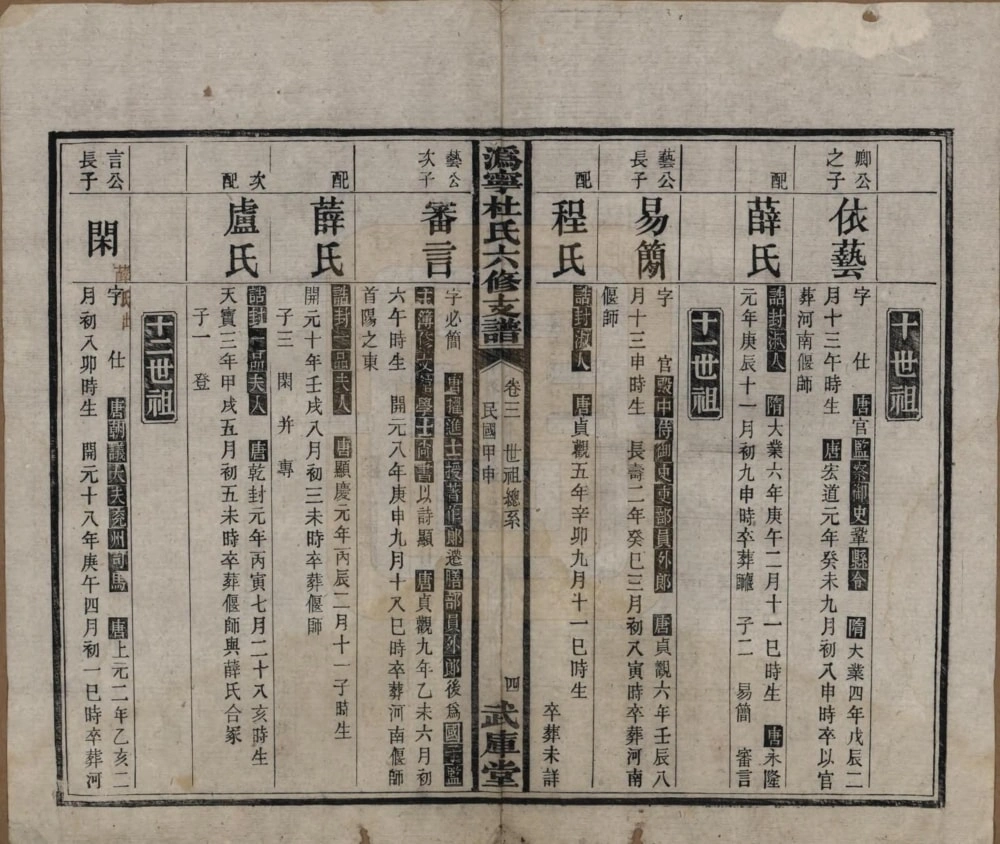 十世祖
卿公之子
依藝
字 仕 唐官監察御史鞏縣令 隋大業四年戊辰二
月十三午時生 唐宏道元年癸未九月初八申時卒以官
葬河南偃師
配
薛氏
誥封淑人 隋大業六年庚午二月十一巳時生 唐永隆
元年庚辰十一月初九申時卒葬 子二 易簡 審言
十一世祖
藝公長子
易簡
字 官殿中侍御史吏部員外郎 唐貞觀六年壬辰八
月十三申時生 長壽二年癸巳三月初八寅時卒葬河南
偃師
配
程氏
誥封淑人 唐貞觀五年辛卯九月十一巳時生
卒葬未詳
溈寧杜氏六修支譜
卷三 世祖總系
民國甲申
四
武庫堂
藝公次子
審言
字必簡 唐擢進士授著作郎遷膳部員外郎後為國子監
主簿修文館學士尚書以詩顯 唐貞觀九年乙未六月初
六午時生 開元八年庚申九月十八巳時卒葬河南偃師
首陽之東
配
薛氏
誥封一品夫人 唐顯慶元年丙辰二月十一子時生
開元十年壬戌八月初三未時卒葬偃師
子三 閑 并 專
次配
盧氏
誥封一品夫人 唐乾封元年丙寅七月二十八亥時生
天寶三年甲戌五月初五未時卒葬偃師與薛氏合冢
子一 登
十二世祖
言公長子
閑
薛氏出
字 仕 唐朝議大夫兗州司馬 唐上元二年乙亥二
月初八卯時生 開元十八年庚午四月初一巳時卒葬河